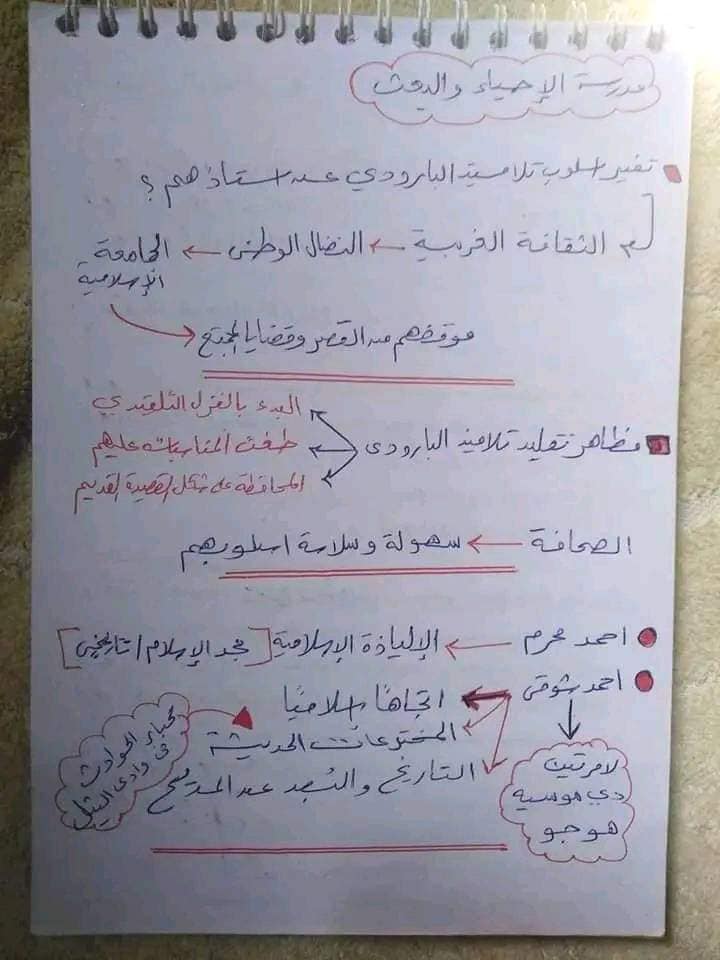 مدرسة الإحياء والبعث
تغير اسلوب تلاميذ البارودي عن استاذهم؟
الثقافة الغربية ← النضال الوطنى ← الجامعة الإسلامية
موقفهم من القصر وقضايا المجتمع
مظاهر تقليد تلاميذ البارودى
البدء بالغزل التقليدي
طغت المناسبات عليهم
المحافظة على شكل القصيدة القديم
الصحافة ← سهولة وسلاسة اسلوبهم
احمد محرم ← الإلياذة الإسلامية [مجد الإسلام / تاريخى]
احمد شوقى ← اتجاهًا اسلاميًا
المخترعات الحديثة
التاريخ والبُعد عن المديح
كبار الحوادث
فى وادى النيل
لامرتين
دي موسيه
هوجو